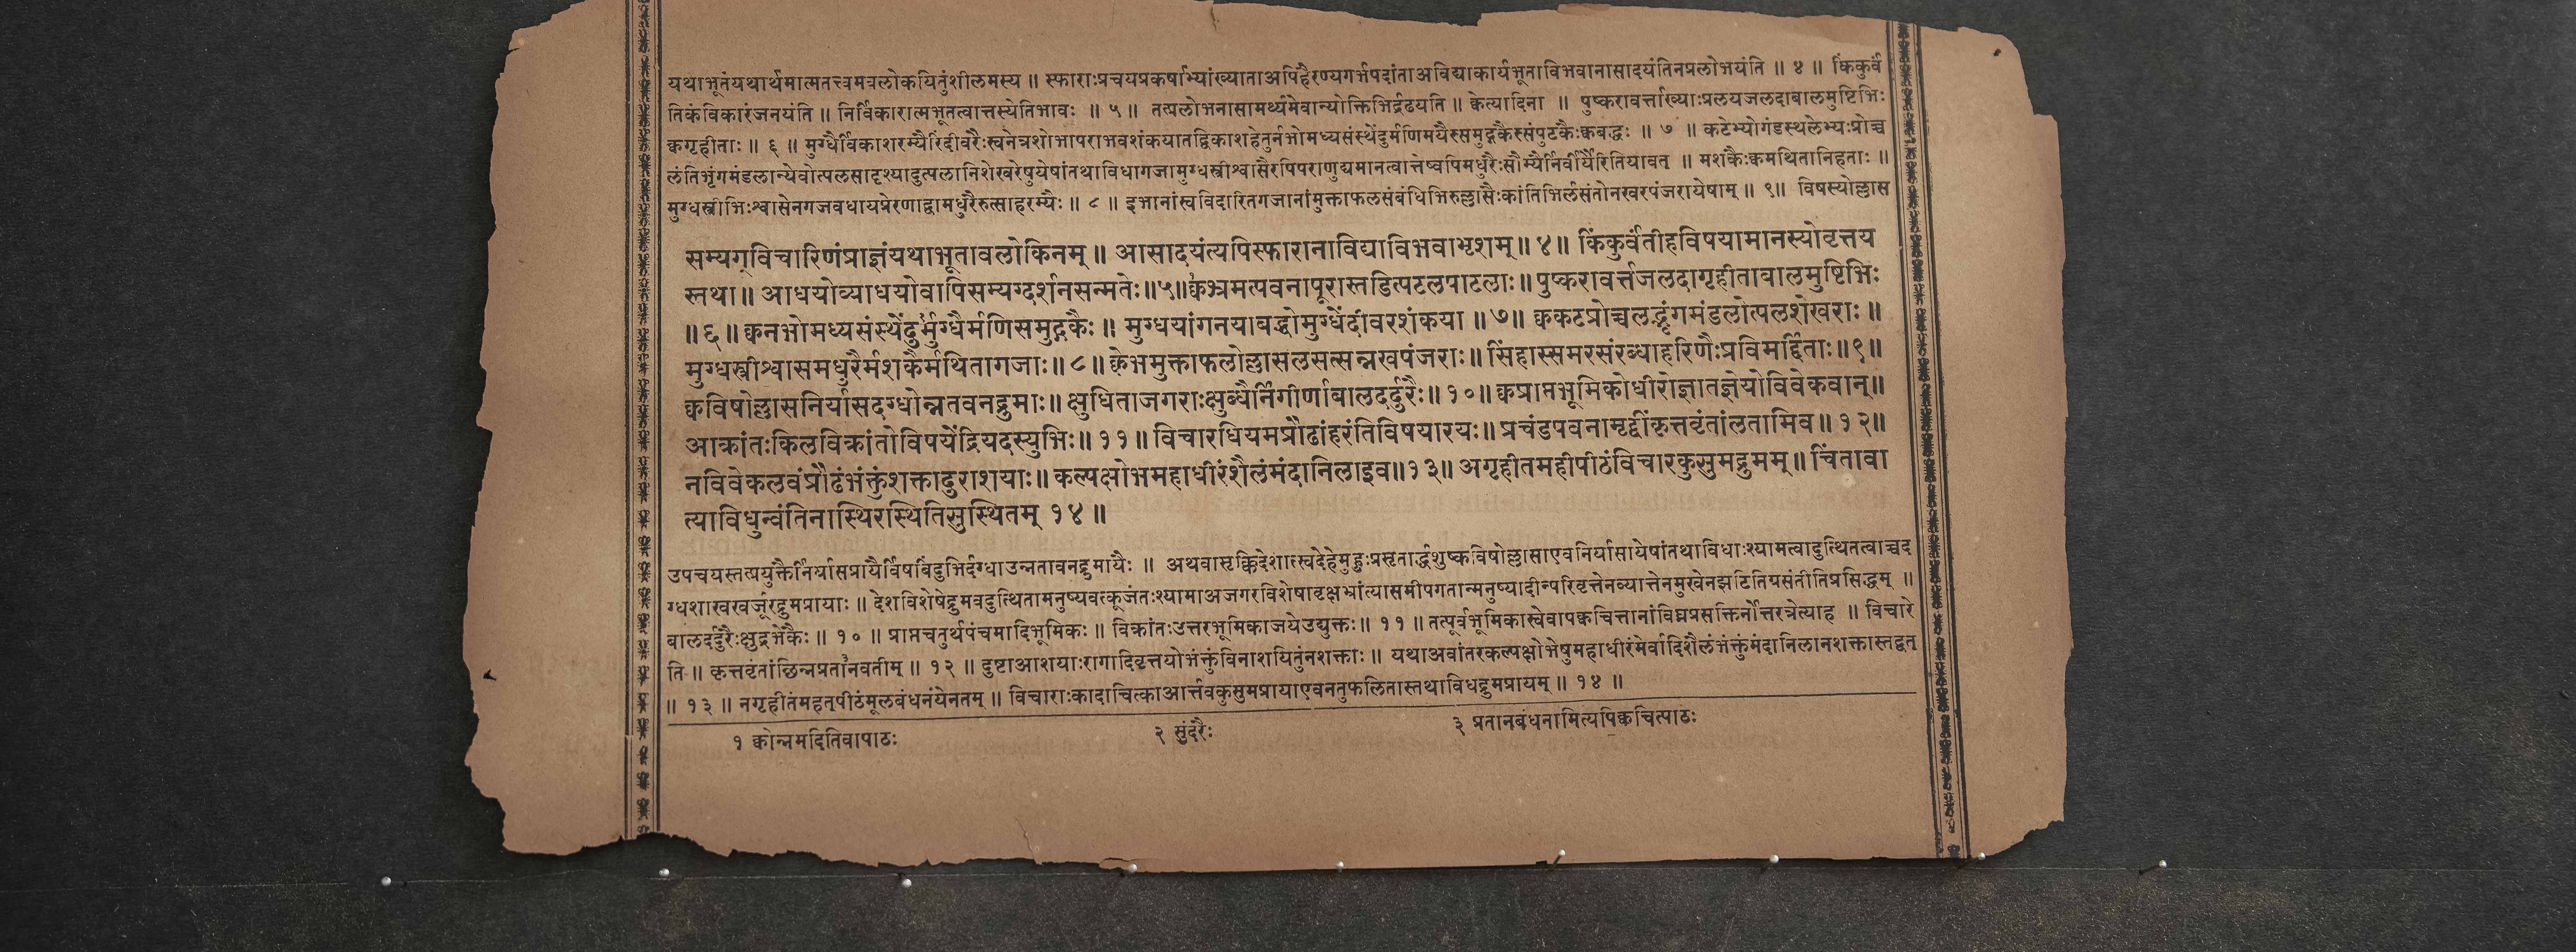 यथाभूतंयथार्थमात्मतत्त्वमवलोकयितुंशीलमस्य ॥ स्फाराःप्रचयप्रकर्षाभ्यांख्याताअपिहैरण्यगर्भपदांताअविद्याकार्यभूताविभवानासादयंतिनप्रलोभयंति ॥ ४ ॥ किंकुर्वं
तिकंविकारंजनयंति ॥ निर्विकारात्मभूतत्वात्तस्येतिभावः ॥ ५ ॥ तत्प्रलोभनासामर्थ्यमेवान्योक्तिभिर्द्रढयति ॥ क्वेत्यादिना ॥ पुष्करावर्त्ताख्याःप्रलयजलदाबालमुष्टिभिः
क्वगृहीताः ॥ ६ ॥ मुग्धैर्विकाशरम्यैरिंदीवरैःस्वनेत्रशोभापराभवशंकयातद्विकाशहेतुर्नभोमध्यसंस्थेंदुर्मणिमयैस्समुद्गकैस्संपुटकैःक्वबद्धः ॥ ७ ॥ कटेभ्योगंडस्थलेभ्यःप्रोच्च
लंतिभृंगमंडलान्येवोत्पलसादृश्यादुत्पलानिशेखरेषुयेषांतथाविधागजामुग्धस्त्रीश्वासैरपिपराणुद्यमानत्वात्तेष्वपिमधुरैःसौम्यैर्निर्वीर्यैरितियावत् ॥ मशकैःक्वमथितानिहताः ॥
मुग्धस्त्रीभिःश्वासेनगजवधायप्रेरणाद्वामधुरैरुत्साहरम्यैः ॥ ८ ॥ इभानांस्वविदारितगजानांमुक्ताफलसंबंधिभिरुल्लासैःकांतिभिर्लसंतोनखरपंजरायेषाम् ॥ ९॥ विषस्योल्लास
सम्यग्विचारिणंप्राज्ञंयथाभूतावलोकिनम् ॥ आसादयंत्यपिस्फारानाविद्याविभवाभृशम् ॥ ४ ॥ किंकुर्वंतीहविषयामानस्योवृत्तय
स्तथा ॥ आधयोव्याधयोवापिसम्यग्दर्शनसन्मतेः ॥५॥ क्वभ्रमत्पवनापूरास्तडित्पटलपाटलाः ॥ पुष्करावर्त्तजलदागृहीताबालमुष्टिभिः
॥ ६ ॥ क्वनभोमध्यसंस्थेंदुर्मुग्धैर्मणिसमुद्गकैः ॥ मुग्धयांगनयाबद्धोमुग्धेंदीवरशंकया ॥ ७॥ क्वकटप्रोच्चलद्भृंगमंडलोत्पलशेखराः ॥
मुग्धस्त्रीश्वासमधुरैर्मशकैर्मथितागजाः ॥ ८ ॥ क्वेभमुक्ताफलोल्लासलसत्सन्नखपंजराः ॥ सिंहास्समरसंरब्धाहरिणैःप्रविमर्द्दिताः ॥९॥
क्वविषोल्लासनिर्यासदग्धोन्नतवनद्रुमाः ॥ क्षुधिताजगराःक्षुब्धैर्निगीर्णाबालदर्दुरैः ॥ १० ॥ क्वप्राप्तभूमिकोधीरोज्ञातज्ञेयोविवेकवान् ॥
आक्रांतःकिलविक्रांतोविषयेंद्रियदस्युभिः ॥ ११ ॥ विचारधियमप्रौढांहरंतिविषयारयः ॥ प्रचंडपवनामृद्वींकृत्तवृंतांलतामिव ॥ १२॥
नविवेकलवंप्रौढंभंक्तुंशक्तादुराशयाः ॥ कल्पक्षोभमहाधीरंशैलंमंदानिलाइव ॥१३॥ अगृहीतमहीपीठंविचारकुसुमद्रुमम् ॥ चिंतावा
त्याविधुन्वंतिनास्थिरस्थितिसुस्थितम् १४ ॥
उपचयस्तत्प्रयुक्तैर्निर्यासप्रायैर्विषबिंदुभिर्दग्धाउन्नतावनद्रुमायैः ॥ अथवासृक्किदेशात्स्वदेहेमुहुःप्रसृतार्द्धशुष्कविषोल्लासाएवनिर्यासायेषांतथाविधाःश्यामत्वादुत्थितत्वाच्चद
ग्धशाखखर्जूरद्रुमप्रायाः ॥ देशविशेषेद्रुमवदुत्थितामनुष्यवत्कूजंतःश्यामाअजगरविशेषावृक्षभ्रांत्यासमीपगतान्मनुष्यादीन्परिवृत्तेनव्यात्तेनमुखेनझटितियसंतीतिप्रसिद्धम् ॥
बालदर्दुरैःक्षुद्रभेकैः ॥ १० ॥ प्राप्तचतुर्थपंचमादिभूमिकः ॥ विक्रांतःउत्तरभूमिकाजयेउद्युक्तः ॥ ११ ॥ तत्पूर्वभूमिकास्वेवापक्वचित्तानांविघ्नप्रसक्तिर्नोत्तरत्रेत्याह ॥ विचारे
ति ॥ कृत्तवृंतांछिन्नप्रतांनवतीम् ॥ १२ ॥ दुष्टाआशयाःरागादिवृत्तयोभंक्तुंविनाशयितुंनशक्ताः ॥ यथाअवांतरकल्पक्षोभेषुमहाधीरंमेर्वादिशैलंभंक्तुंमंदानिलानशक्तास्तद्वत्
॥ १३ ॥ नगृहीतंमहत्पीठंमूलबंधनंयेनतम् ॥ विचाराःकादाचित्काआर्त्तवकुसुमप्रायाएवनतुफलितास्तथाविधद्रुमप्रायम् ॥ १४ ॥
१ क्वोन्नमदितिवापाठः २ सुंदरैः ३ प्रतानबंधनामित्यपिक्वचित्पाठः